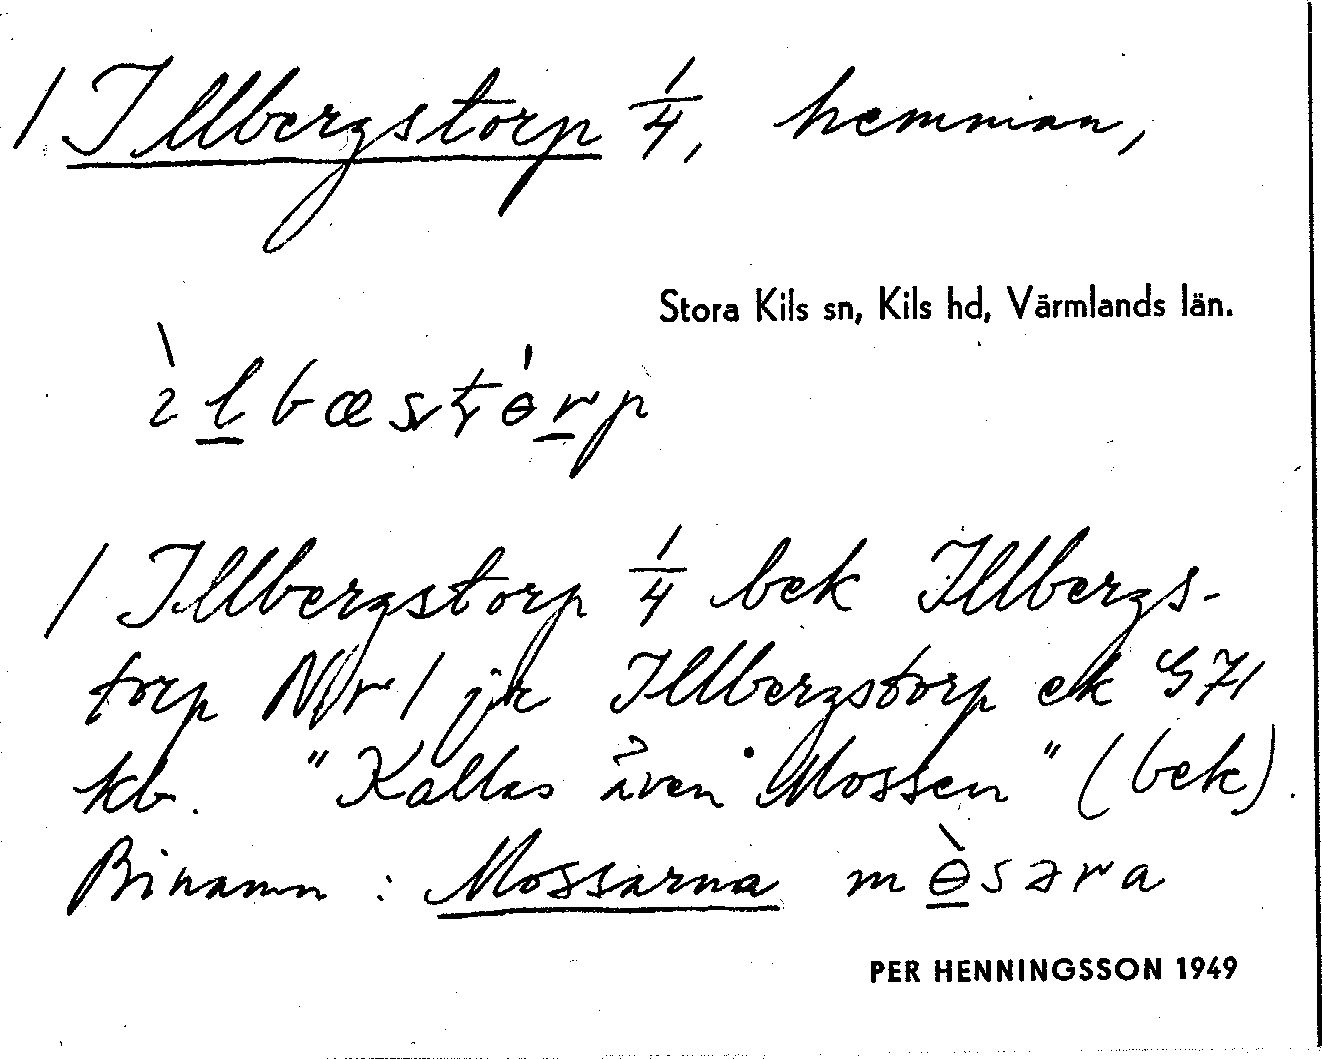 1 Illbergstorp 1/4, hemman,
Stora Kils sn, Kils hd, Värmlands län.
ìlbæstɵ́rp
1 Illbergstorp 1/4 bek Illbergs-
torp Nr 1 jr Illbergstorp ek G71
kb. "Kallas även Mossen" (bek).
Binamn: Mossarna mɵ̀səra
PER HENNINGSSON 1949